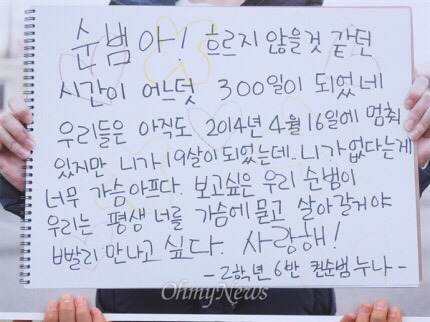 순범아! 흐르지 않을것 같던
시간이 어느덧 300일이 되었네
우리들은 아직도 2014년 4월16일에 멈춰
있지만 니가 19살이 되었는데.. 니가 없다는게
너무 가슴아프다. 보고싶은 우리 순범이
우리는 평생 너를 가슴에 묻고 살아갈거야
빨리 만나고 싶다. 사랑해!
- 2학년 6반 권순범 누나 -
OhmyNews